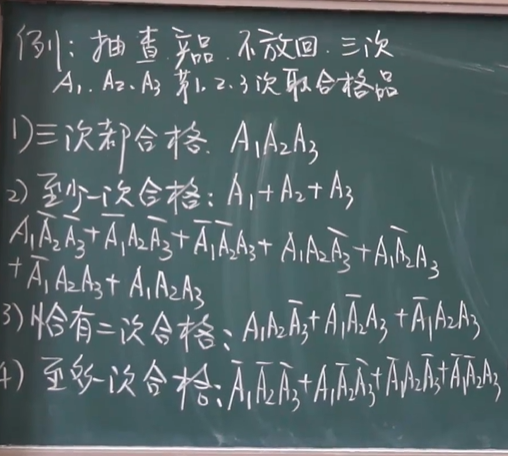 例: 抽查产品.不放回.三次
A₁.A₂.A₃ 第1.2.3次取合格品
1)三次都合格. A₁A₂A₃
2) 至少一次合格: A₁+A₂+A₃
A₁A̅₂A̅₃+A̅₁A₂A̅₃+A̅₁A̅₂A₃+ A₁A₂A̅₃+A₁A̅₂A₃
+A̅₁A₂A₃+A₁A₂A₃
3)恰有二次合格: A₁A₂A̅₃+A₁A̅₂A₃+A̅₁A₂A₃
4) 至多一次合格: A̅₁A̅₂A̅₃+A₁A̅₂A̅₃+A̅₁A₂A̅₃+A̅₁A̅₂A₃